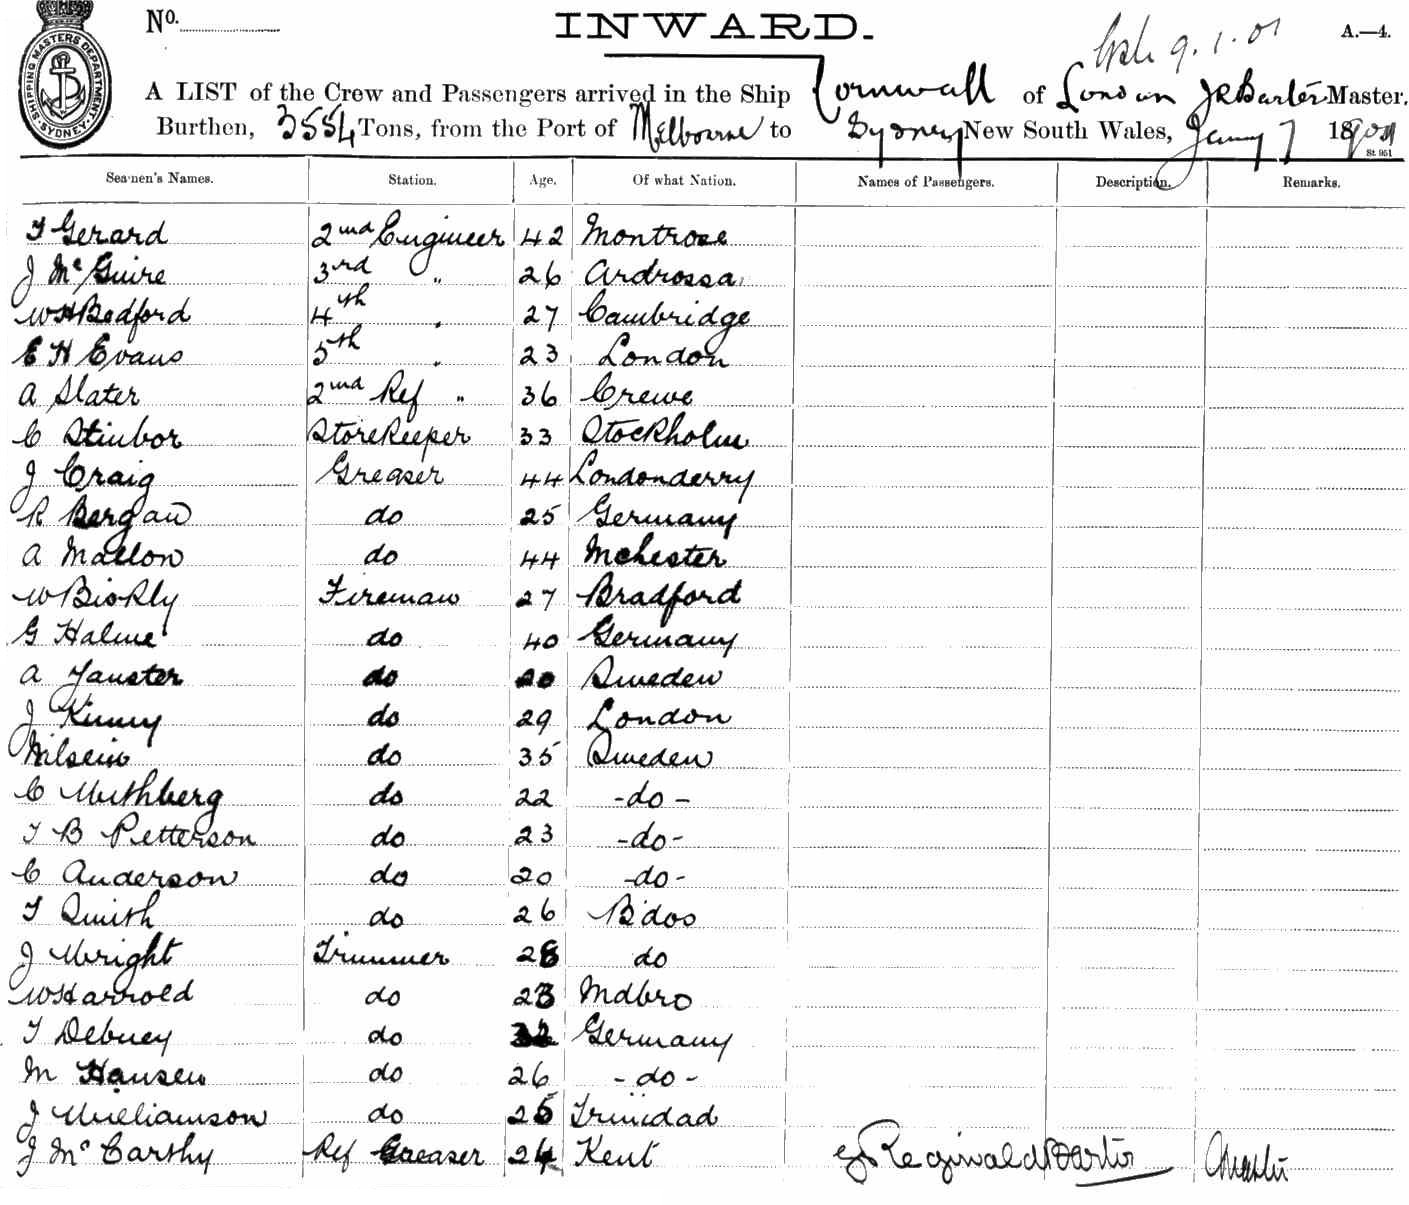 No.
INWARD.
9.1.01
A.—4.
A LIST of the Crew and Passengers arrived in the Ship Cornwall of London J R Barter Master.
Burthen, 3554 Tons, from the Port of Melbourne to Sydney, New South Wales, 7 1901
St 951
SHIPPING MASTERS DEPARTMENT SYDNEY
Seamen's Names. Station. Age. Of what Nation. Names of Passengers. Description. Remarks.
T Gerard 2nd Engineer 42 Montrose
J McGuire 3rd " 26 Ardrossa
W H Bedford 4th " 27 Cambridge
E H Evans 5th " 23 London
A Slater 2nd Ref " 36 Crewe
C Stinbor Storekeeper 33 Stockholm
J Craig Greaser 44 Londonderry
R Bergan do 25 Germany
A Mallon do 44 Mchester
W Bickly Fireman 27 Bradford
G Halme do 40 Germany
A Janster do 20 Sweden
J Kinny do 29 London
Nilsein do 35 Sweden
C Muthberg do 22 -do-
T B Petterson do 23 -do-
C Anderson do 20 -do-
T Smith do 26 B'dos
J Wright Trimmer 28 do
W Harrold do 23 Mdbro
T Debney do Germany
M Hansen do 26 -do-
J Williamson do 25 Trinidad
J McCarthy Ref Greaser 24 Kent
J Reginald Barter Master